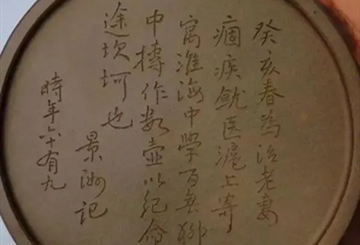 癸亥春為治老妻
痼疾就医滬上寄
寓淮海中学百無聊
中摶作数壶以纪念
途坎坷也
景洲记
時年六十有九